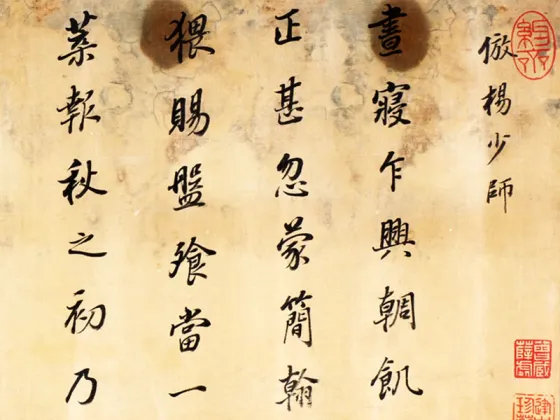 倣楊少師
晝寢乍興朝飢
正甚忽蒙簡翰
猥賜盤飧當一
葉報秋之初乃